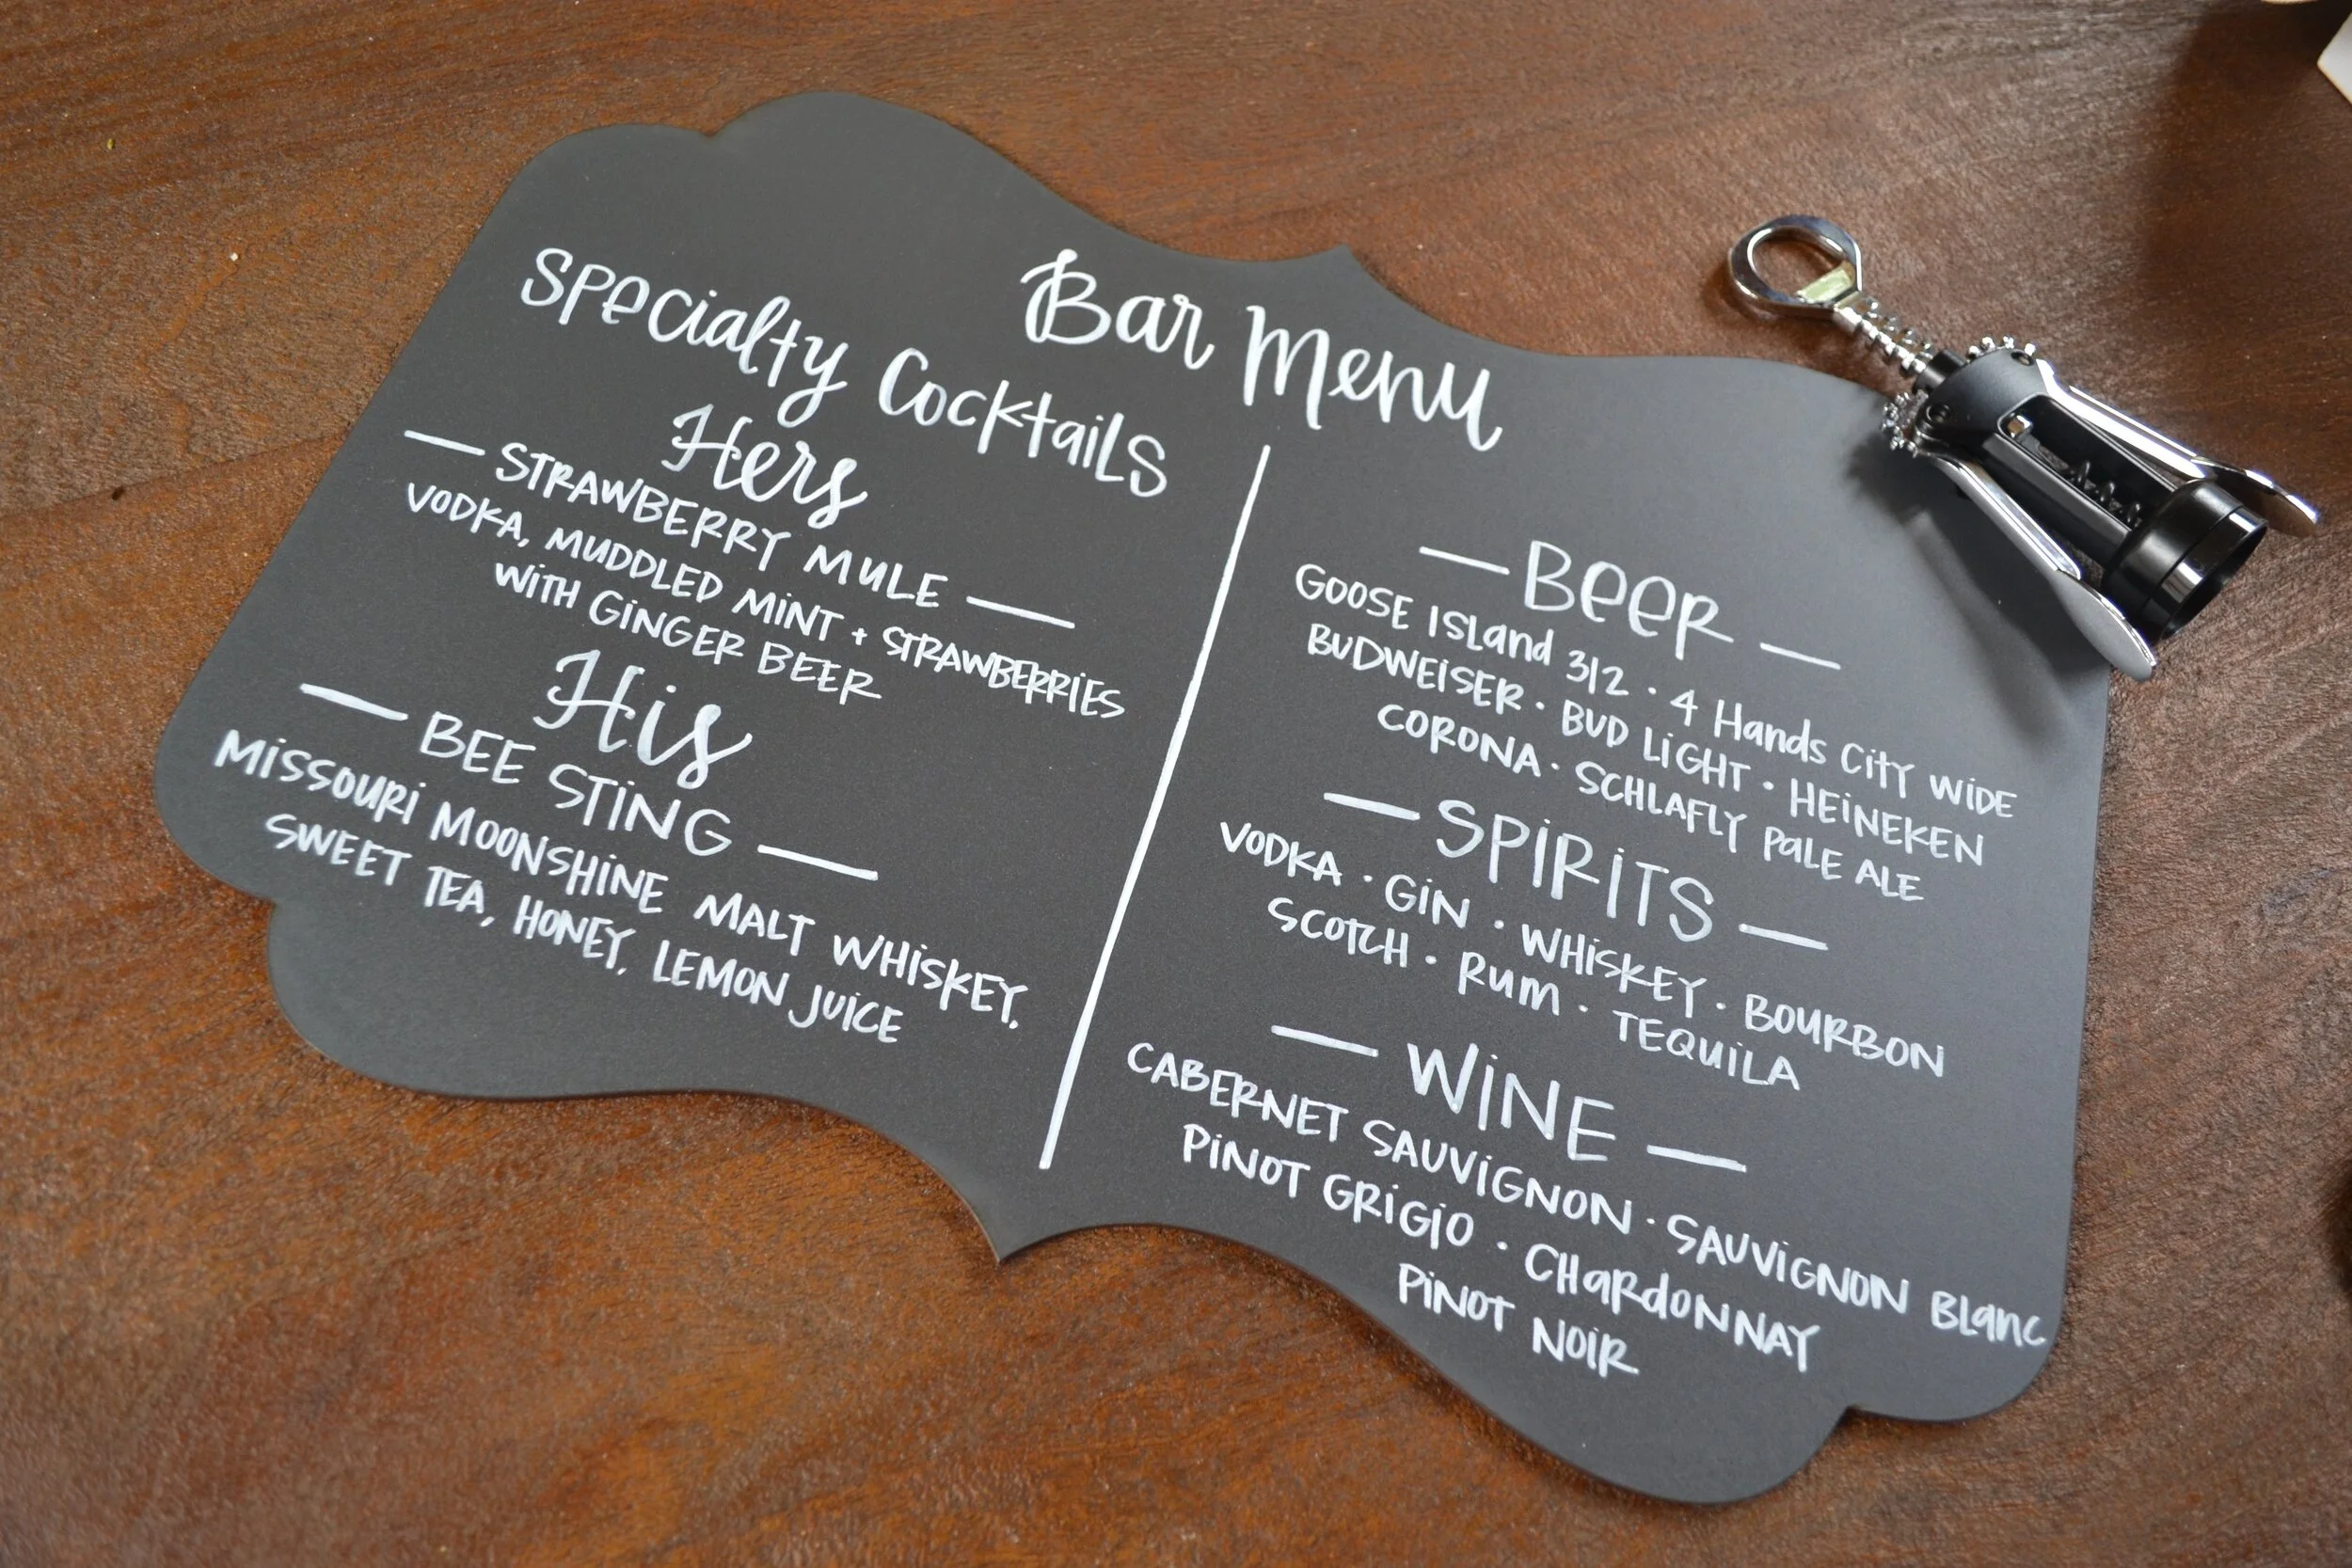 Bar Menu
Specialty Cocktails
Hers
STRAWBERRY MULE
VODKA, MUDDLED MINT + STRAWBERRIES
WITH GINGER BEER
His
BEE STING
MISSOURI MOONSHINE MALT WHISKEY,
SWEET TEA, HONEY, LEMON JUICE
BEER
GOOSE ISLAND 312 · 4 Hands CITY WIDE
BUDWEISER · BUD LIGHT · HEINEKEN
CORONA · SCHLAFLY PALE ALE
SPIRITS
VODKA · GIN · WHISKEY · BOURBON
SCOTCH · RUM · TEQUILA
WINE
CABERNET SAUVIGNON · SAUVIGNON BLANC
PINOT GRIGIO · CHARDONNAY
PINOT NOIR